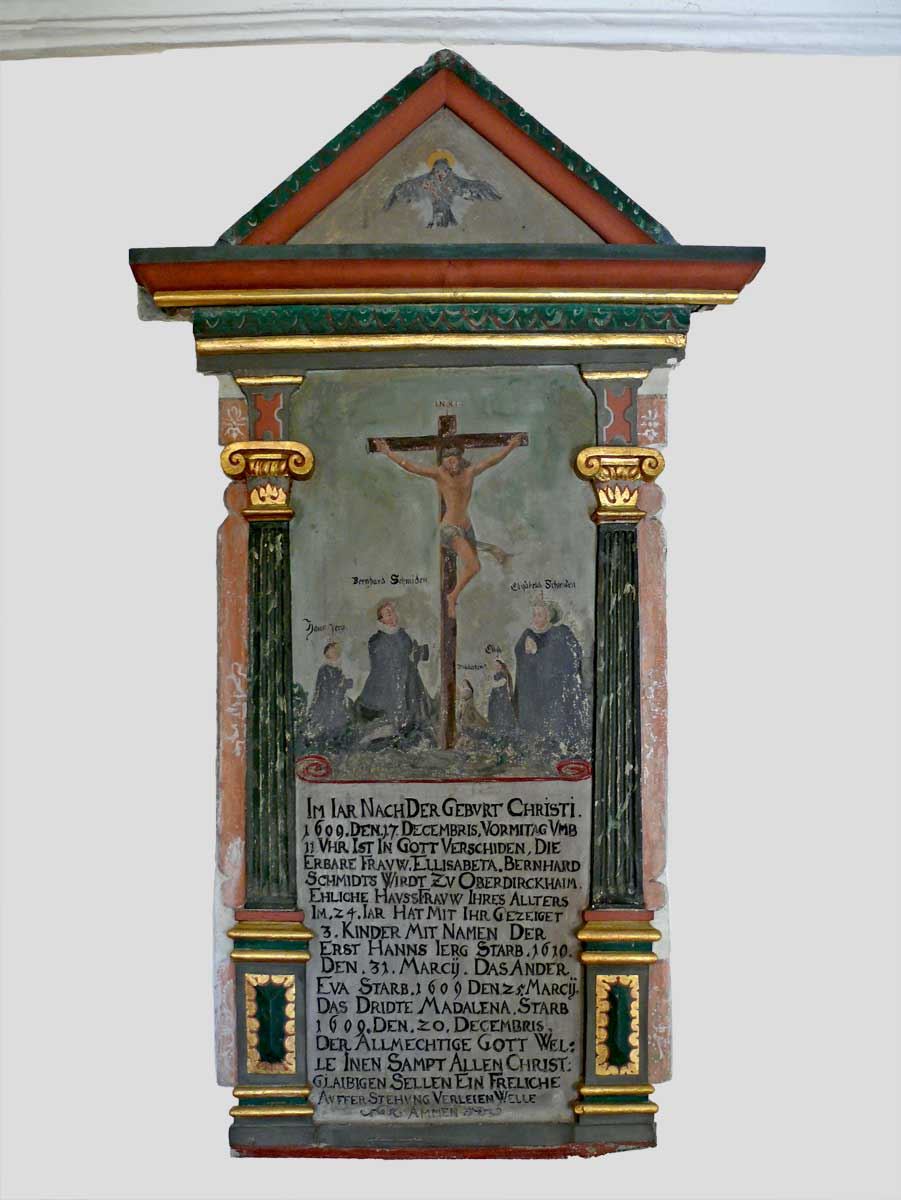 INRI
Bernhard Schmiden
Elisabeta Schmiden
Hans Jerg
Eva
IM IAR NACH DER GEBVRT CHRISTI.
1609. DEN. 17. DECEMBRIS, VORMITAG VMB
11 VHR IST IN GOTT VERSCHIDEN, DIE
ERBARE FRAVW. ELLISABETA. BERNHARD
SCHMIDTS WIRDT ZV OBERDIRCKHAIM.
EHLICHE HAVSSFRAVW IHRES ALLTERS
IM. 24. IAR HAT MIT IHR GEZEIGET
3. KINDER MIT NAMEN DER
ERST HANNS IERG STARB. 1610.
DEN. 31. MARCIJ. DAS ANDER
EVA STARB. 1609 DEN 25. MARCIJ.
DAS DRIDTE MADALENA. STARB
1609. DEN. 20. DECEMBRIS.
DER ALLMECHTIGE GOTT WEL:
LE INEN SAMPT ALLEN CHRIST:
GLAIBIGEN SELLEN EIN FRELICHE
AVFFERSTEHVNG VERLEIEN WELLE
AMMEN